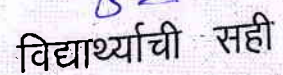 विद्यार्थ्याची सही